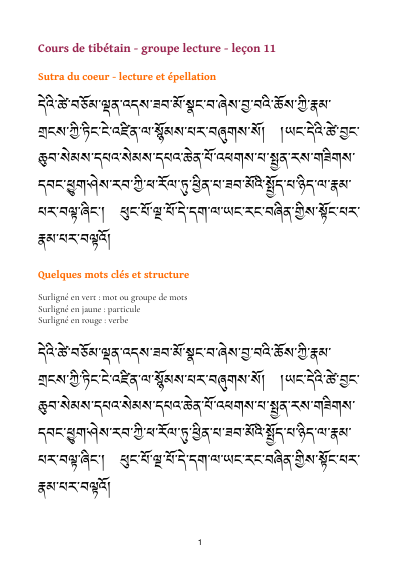 Cours de tibétain - groupe lecture - leçon 11
Sutra du coeur - lecture et épellation
དེའི་ཚེ་བཅོམ་ལྡན་འདས་ཟབ་མོ་སྣང་བ་ཞེས་བྱ་བའི་ཆོས་ཀྱི་རྣམ་
གྲངས་ཀྱི་ཏིང་ངེ་འཛིན་ལ་སྙོམས་པར་བཞུགས་སོ། །ཡང་དེའི་ཚེ་བྱང་
ཆུབ་སེམས་དཔའ་སེམས་དཔའ་ཆེན་པོ་འཕགས་པ་སྤྱན་རས་གཟིགས་
དབང་ཕྱུག་ཤེས་རབ་ཀྱི་ཕ་རོལ་ཏུ་ཕྱིན་པ་ཟབ་མོའི་སྤྱོད་པ་ཉིད་ལ་རྣམ་
པར་བལྟ་ཞིང་། ཕུང་པོ་ལྔ་པོ་དེ་དག་ལ་ཡང་རང་བཞིན་གྱིས་སྟོང་པར་
རྣམ་པར་བལྟའོ།
Quelques mots clés et structure
Surligné en vert : mot ou groupe de mots
Surligné en jaune : particule
Surligné en rouge : verbe
དེའི་ཚེ་བཅོམ་ལྡན་འདས་ཟབ་མོ་སྣང་བ་ཞེས་བྱ་བའི་ཆོས་ཀྱི་རྣམ་
གྲངས་ཀྱི་ཏིང་ངེ་འཛིན་ལ་སྙོམས་པར་བཞུགས་སོ། །ཡང་དེའི་ཚེ་བྱང་
ཆུབ་སེམས་དཔའ་སེམས་དཔའ་ཆེན་པོ་འཕགས་པ་སྤྱན་རས་གཟིགས་
དབང་ཕྱུག་ཤེས་རབ་ཀྱི་ཕ་རོལ་ཏུ་ཕྱིན་པ་ཟབ་མོའི་སྤྱོད་པ་ཉིད་ལ་རྣམ་
པར་བལྟ་ཞིང་། ཕུང་པོ་ལྔ་པོ་དེ་དག་ལ་ཡང་རང་བཞིན་གྱིས་སྟོང་པར་
རྣམ་པར་བལྟའོ།
1